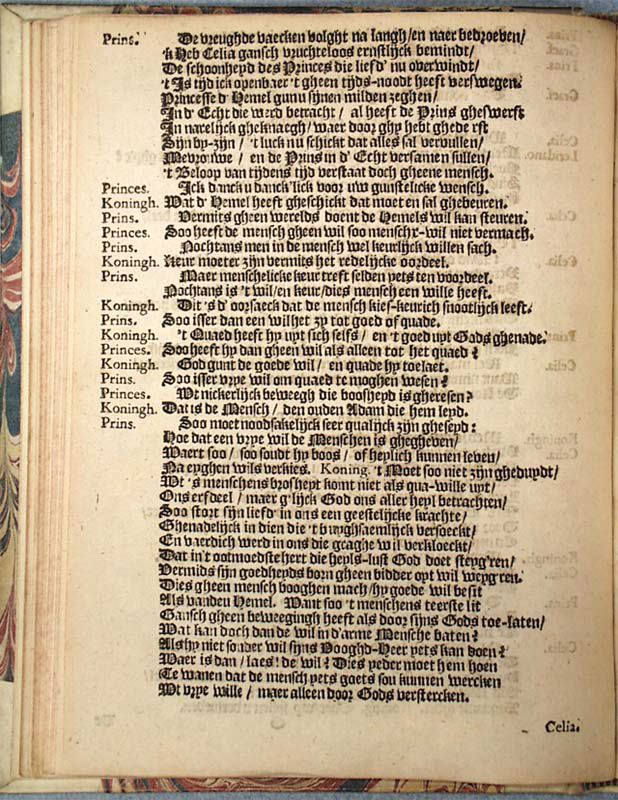 Prins. De vreughde vaecken volght na langh/en naer bedroeven/
'k Heb Celia gansch vruchteloos ernstlijck bemindt/
De schoonheyd des Princes die liefd' nu overwindt/
't Is tijd ick openbaer 't gheen tijds-noodt heeft verswegen.
Princesse d' Hemel gun u sijnen milden zeghen/
In d' Echt die werd betracht/ al heeft de Prins ghesweest
In narelijck ghekmaegh/ waer door ghy hebt ghede est
Sijn by-zijn/ 't luck nu schickt dat alles sal vervullen/
Mevrouwe/ en de Prins in d' Echt versamen sullen/
't Beloop van tijden tijd verstaat doch gheene mensch.
Princes. Ick danck u danck'lick voor uw gunstelicke wensch.
Koningh. Wat d' Hemel heeft gheschickt dat moet en sal ghebeuren.
Prins. Vermits gheen werelds doent de Hemels wil kan steuren.
Princes. Soo heeft de mensch gheen wil soo menschr-wil niet vermach.
Prins. Nochtans men in de mensch wel keurlijck willen sach.
Koningh. Keur moeter zijn vermits het redelijcke oordeel.
Prins. Maer menschelicke keur treft selden yets ten voordeel.
Nochtans is 't wil/en keur/dies mensch een wille heeft.
Koningh. Dit 's d' oorsaeck dat de mensch kies-keurich snootlijck leeft.
Prins. Soo isser dan een wil het zy tot goed of quade.
Koningh. 't Quaed heeft hy uyt sich selfs/ en 't goed uyt Gods ghenade.
Princes. Soo heeft hy dan gheen wil als alleen tot het quaed?
Koningh. God gunt de goede wil/ en quade hy toelaet.
Prins. Soo isser vrye wil om quaed te moghen wesen?
Princes. Wt nickerlijck beweegh die boosheyd is gheresen?
Koningh. Dat is de Mensch/ den ouden Adam die hem leyd.
Prins. Soo moet noodsakelijck seer qualijck zijn gheseyd:
Hoe dat een vrye wil de Menschen is ghegheven/
Waert soo/ soo soudt hy boos/ of heylich kunnen leven/
Na eyghen wils verkies. Koning. 't Moet soo niet zijn gheduydt/
Wt 's menschens boosheyt komt niet als qua-wille uyt/
Ons erfdeel/ maer g'lijck God ons aller heyl betrachten/
Soo stort sijn liefd' in ons een geestelijcke krachte/
Ghenadelijck in dien die 't buyghsaemlijck versoeckt/
En vaerdich werd in ons die graghe wil verkloeckt/
Dat in't ootmoedste hert die heyls-lust God doet steyg'ren/
Vermids sijn goedheyds born gheen bidder oyt wil weyg'ren.
Dies gheen mensch booghen mach/hy goede wil besit
Als van den Hemel. Want soo 't menschens teerste lit
Gansch gheen beweegingh heeft als door sijns Gods toe-laten/
Wat kan doch dan de wil in d'arme Mensche baten?
Als hy niet sonder wil sijns Hooghd-Heer yets kan doen?
Waer is dan/ laes! de wil? Dies yeder moet hem hoen
Te wanen dat de mensch yets goets sou kunnen wercken
Wt vrye wille/ maer alleen door Gods verstercken.
Celia.